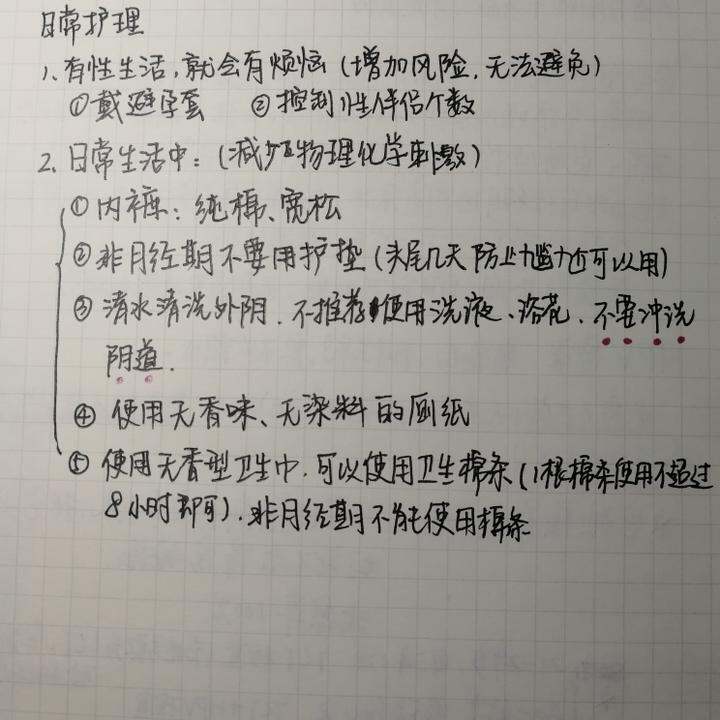 日常护理
1、有性生活,就会有烦恼(增加风险,无法避免)
①戴避孕套 ②控制性伴侣个数
2、日常生活中:(减少物理化学刺激)
①内裤:纯棉、宽松
②非月经期不要用护垫(头尾几天防止尴尬可以用)
③清水清洗外阴.不推荐使用洗液、浴花.不要冲洗
阴道.
④使用无香味、无染料的厕纸
⑤使用无香型卫生巾.可以使用卫生棉条(1根棉条使用不超过
8小时即可).非月经期不能使用棉条